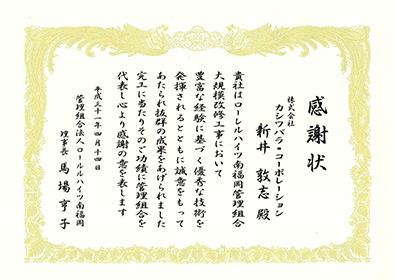 感謝状
株式会社
カシワバラ・コーポレーション
新井 敦志 殿
貴社はローレルハイツ南福岡管理組合
大規模改修工事において
豊富な経験に基づく優秀な技術を
発揮されるとともに誠意をもって
あたられ抜群の成果をあげられました
完工に当たりそのご功績に管理組合を
代表し心より感謝の意を表します
平成三十一年四月十四日
管理組合法人ロールルハイツ南福岡
理事長 馬場 亨子